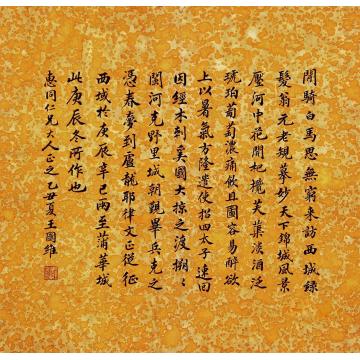 閒騎白馬思無窮来訪西城綠
髮翁元老規摹妙天下錦城風景
壓河中花開杷欖芙蕖淡酒泛
琥珀葡萄濃痛飲且圖容易醉欲
上以暑氣方隆遣使招四太子速回
因經木剌奚國大掠之渡搠搠
闌河克野里城朝覲畢兵克之
憑春夢到盧龍耶律文正從征
西域於庚辰辛巳兩至蒲華城
此庚辰冬所作也
惠同仁兄大人正之乙丑夏王國維